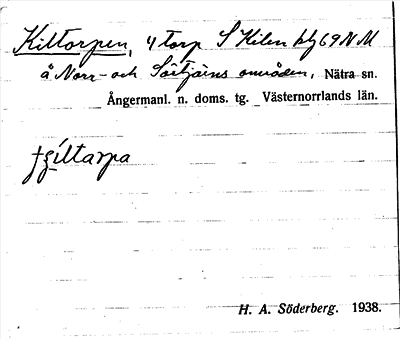 Kiltorpen, 4 torp S Kilen blg 69 NM
å Norr- och Sörtjärns områden, Nätra sn.
Ångermanl. n. doms. tg. Västernorrlands län.
H. A. Söderberg. 1938.